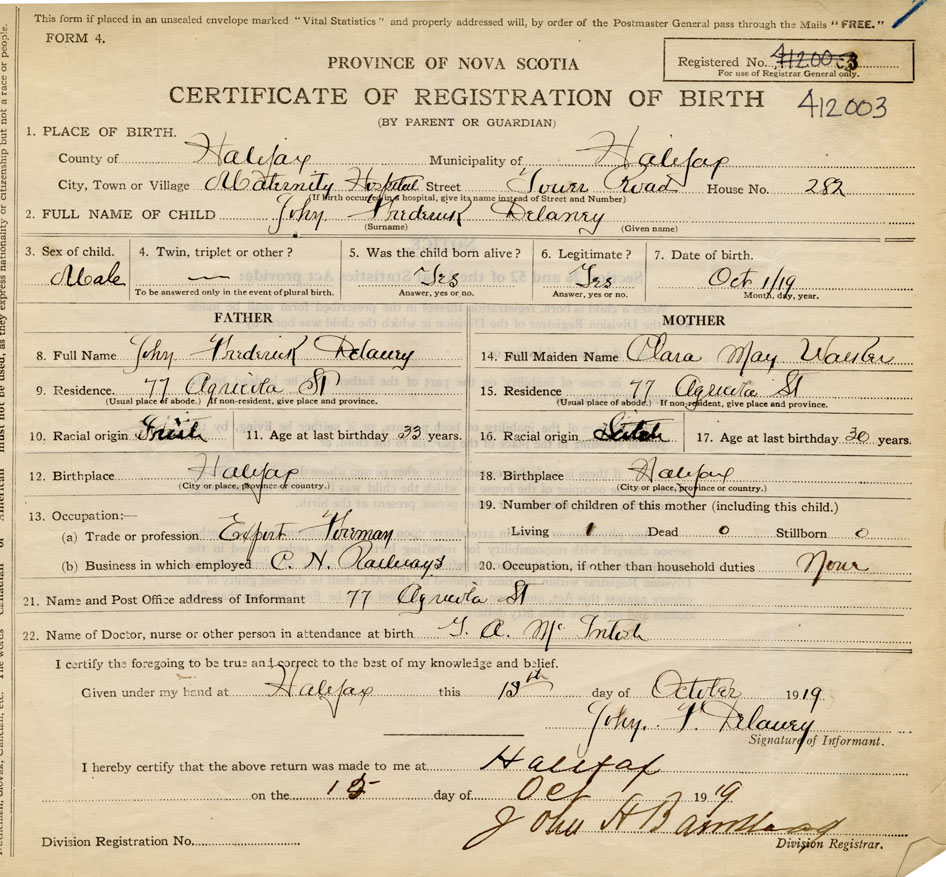 This form if placed in an unsealed envelope marked "Vital Statistics" and properly addressed will, by order of the Postmaster General pass through the Mails "FREE."
FORM 4.
Registered No.
For use of Registrar General only.
412003
PROVINCE OF NOVA SCOTIA
CERTIFICATE OF REGISTRATION OF BIRTH
(BY PARENT OR GUARDIAN)
1. PLACE OF BIRTH.
County of Halifax Municipality of Halifax
City, Town or Village Maternity Hospital Street Tower Road House No. 282
(If birth occurred in a hospital, give its name instead of Street and Number)
2. FULL NAME OF CHILD John Frederick Delaney
(Surname) (Given name)
3. Sex of child. 4. Twin, triplet or other? 5. Was the child born alive? 6. Legitimate? 7. Date of birth.
Male — Yes Yes Oct 1/19
To be answered only in the event of plural birth. Answer, yes or no. Answer, yes or no. Month, day, year.
FATHER MOTHER
8. Full Name John Frederick Delaney 14. Full Maiden Name Clara May
9. Residence 77 Agricola St 15. Residence 77 Agricola St
(Usual place of abode.) If non-resident, give place and province. (Usual place of abode.) If non-resident, give place and province.
10. Racial origin Irish 11. Age at last birthday 33 years. 16. Racial origin 17. Age at last birthday 30 years.
12. Birthplace Halifax 18. Birthplace Halifax
(City or place, province or country.) (City or place, province or country.)
19. Number of children of this mother (including this child.)
13. Occupation:—
Living 1 Dead 0 Stillborn 0
(a) Trade or profession Foreman
(b) Business in which employed C. N. Railways 20. Occupation, if other than household duties None
21. Name and Post Office address of Informant 77 Agricola St
22. Name of Doctor, nurse or other person in attendance at birth A. McIntosh
I certify the foregoing to be true and correct to the best of my knowledge and belief.
Given under my hand at Halifax this day of October 1919
John. F. Delaney
Signature of Informant.
I hereby certify that the above return was made to me at Halifax
on the 15 day of Oct 1919
John H
Division Registration No. Division Registrar.